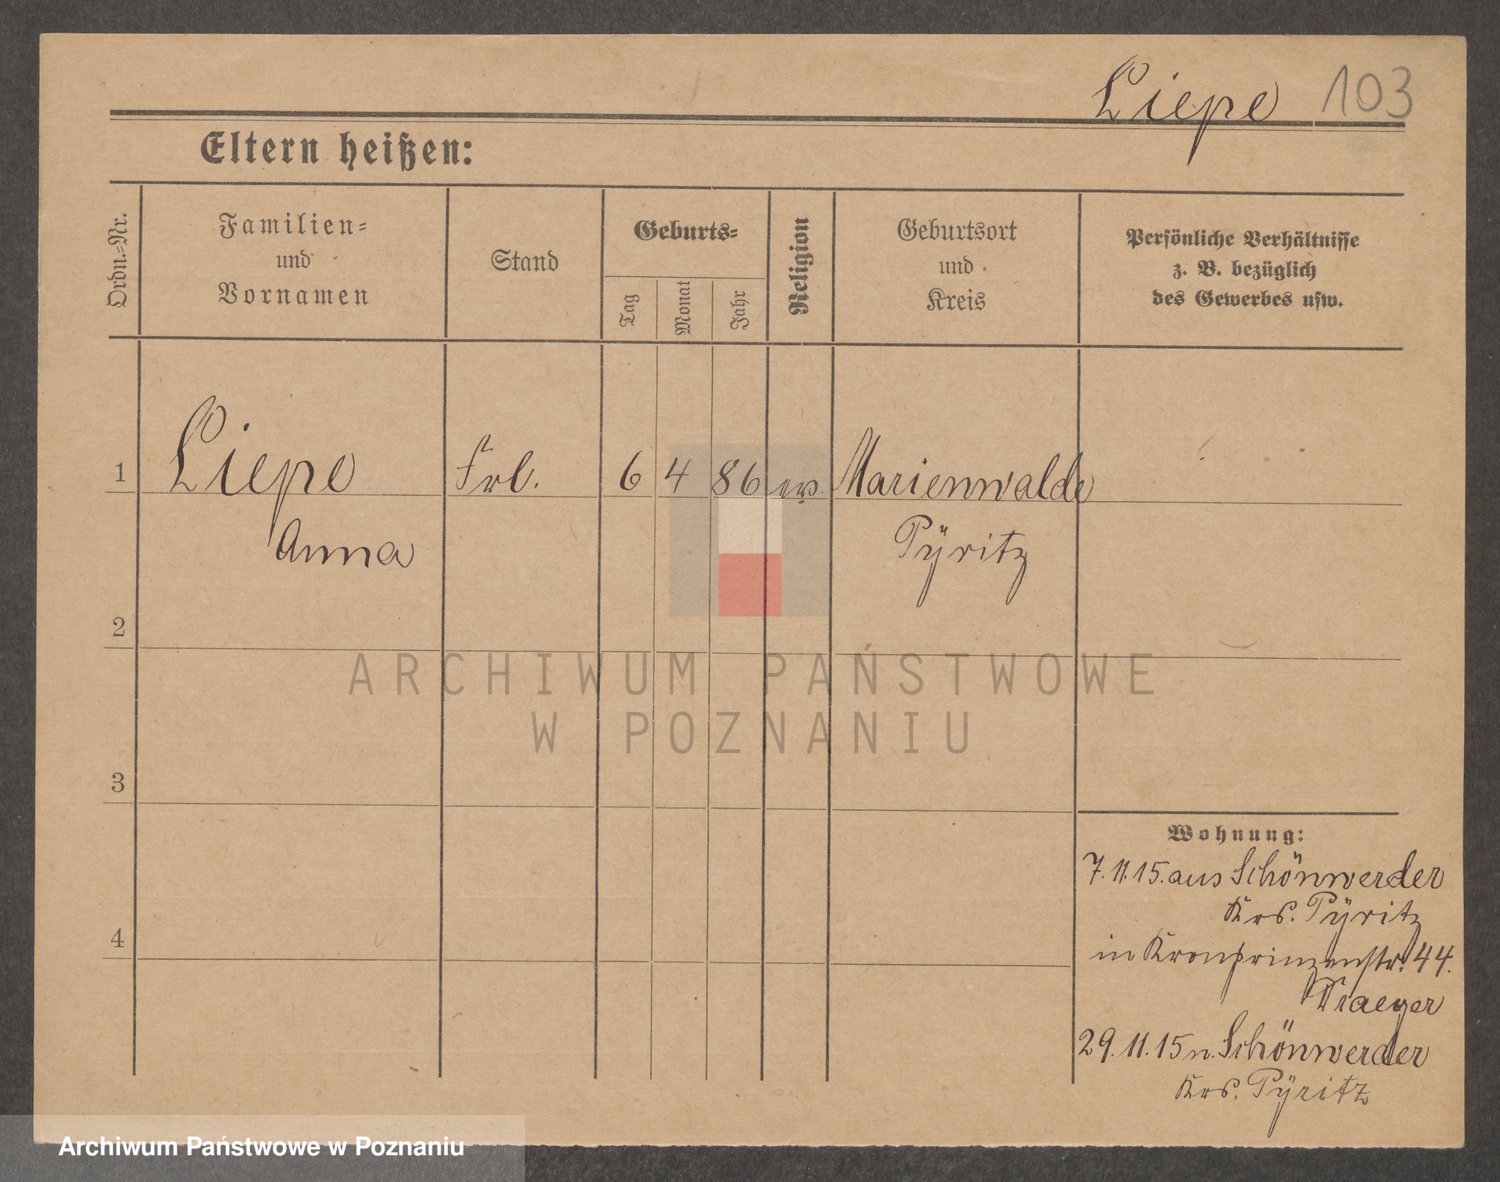 Liepe 103
Eltern heißen:
Ordn.-Nr.
Familien-
und
Vornamen
Stand
Geburts-
Tag
Monat
Jahr
Religion
Geburtsort
und
Kreis
Persönliche Verhältnisse
z. B. bezüglich
des Gewerbes usw.
1 Liepe Frl. 6 4 86 ev. Marienwalde
Anna Pÿritz
2
3
4
ARCHIWUM PAŃSTWOWE
W POZNANIU
Wohnung:
7.11.15. aus Schönwerder
Krs. Pÿritz
in Kronprinzenstr. 44.
29.11.15 n. Schönwerder
Krs. Pÿritz
Archiwum Państwowe w Poznaniu